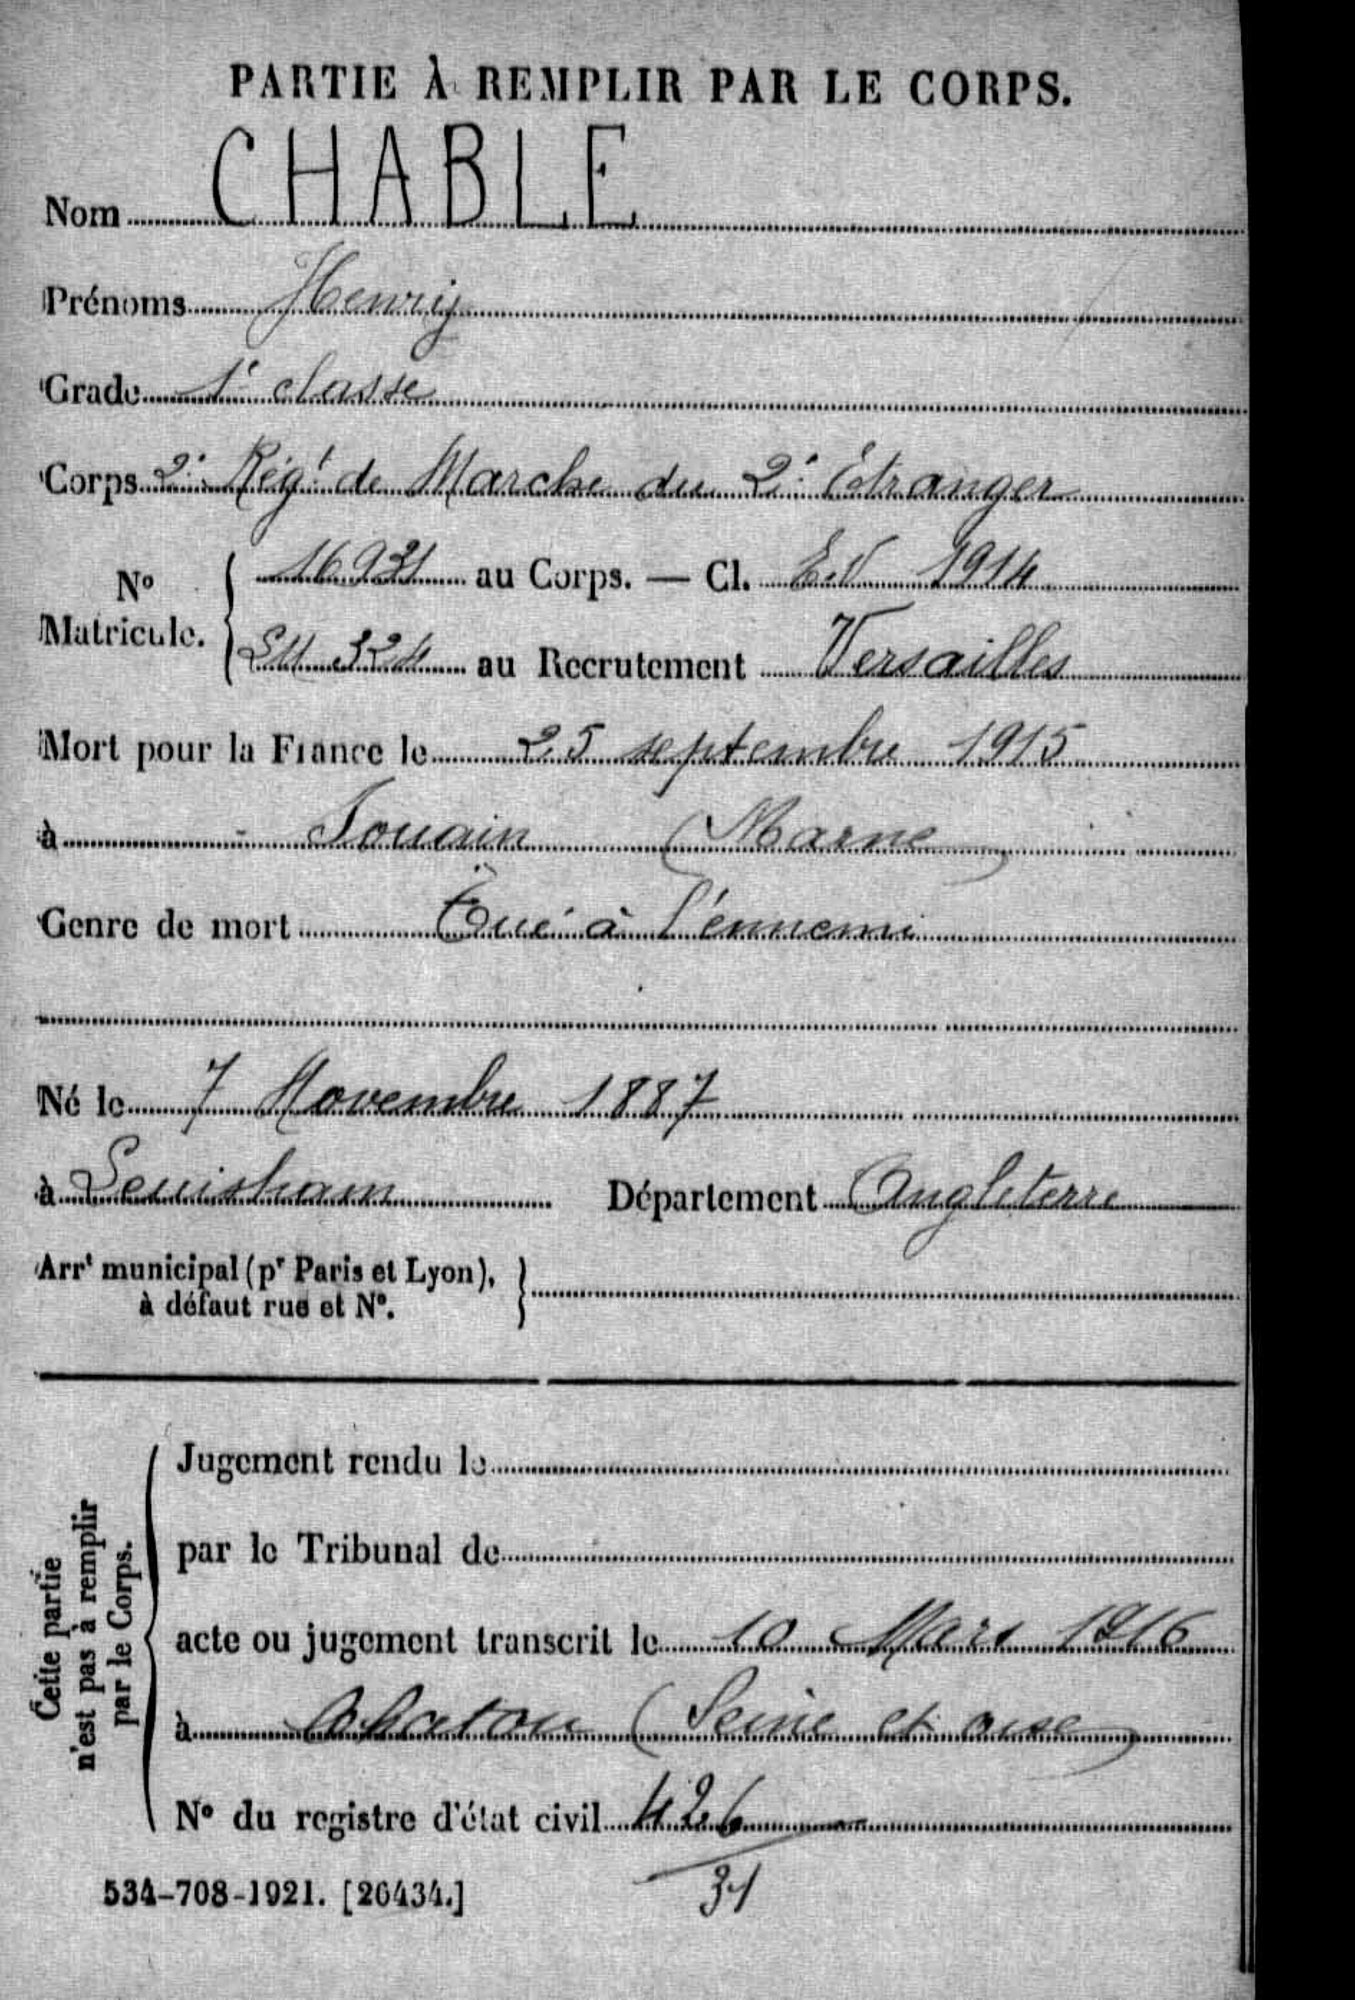 PARTIE À REMPLIR PAR LE CORPS.
Nom CHABLE
Prénoms Henry
Grade 1e classe
Corps 2e Régt de Marche du 2e Étranger
No Matricule. 16931 au Corps. — Cl. E.V 1914
324 au Recrutement Versailles
Mort pour la France le 25 septembre 1915
à Souain (Marne)
Genre de mort Tué à l'ennemi
Né le 7 Novembre 1887
à Lewisham Département Angleterre
Arrt municipal (pr Paris et Lyon),
à défaut rue et No.
Cette partie
n'est pas à remplir
par le Corps.
Jugement rendu le
par le Tribunal de
acte ou jugement transcrit le 10 Mars 1916
à Chatou (Seine et oise)
No du registre d'état civil 426
31
534-708-1921. [26434.]